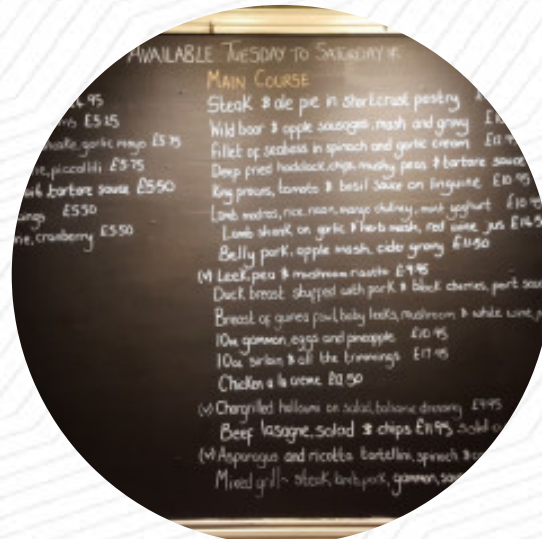 AVAILABLE TUESDAY TO SATURDAY
.95
£5.25
garlic mayo £5.75
piccalilli £5.75
tartare sauce £5.50
£5.50
cranberry £5.50
MAIN COURSE
Steak & ale pie in shortcrust pastry
Wild boar & apple sausages, mash and gravy
Fillet of seabass in spinach and garlic cream
Deep fried haddock, chips, mushy peas & tartare sauce
King prawns, tomato & basil sauce on linguine £10.95
Lamb madras, rice, naan, mango chutney, mint yoghurt
Lamb shank on garlic & herb mash, red wine jus
Belly pork, apple mash, cider gravy £11.50
(v) Leek, pea & mushroom risotto £9.95
Duck breast stuffed with pork & black cherries, port
Breast of guinea fowl, baby leeks, mushroom & white wine
10oz gammon, eggs and pineapple £10.95
10oz sirloin & all the trimmings £17.95
Chicken a la creme
(v) Chargrilled halloumi on salad, balsamic dressing £9.95
Beef lasagne, salad & chips £11.95
(v) Asparagus and ricotta tortellini, spinach &
Mixed grill - steak, lamb, pork, gammon,